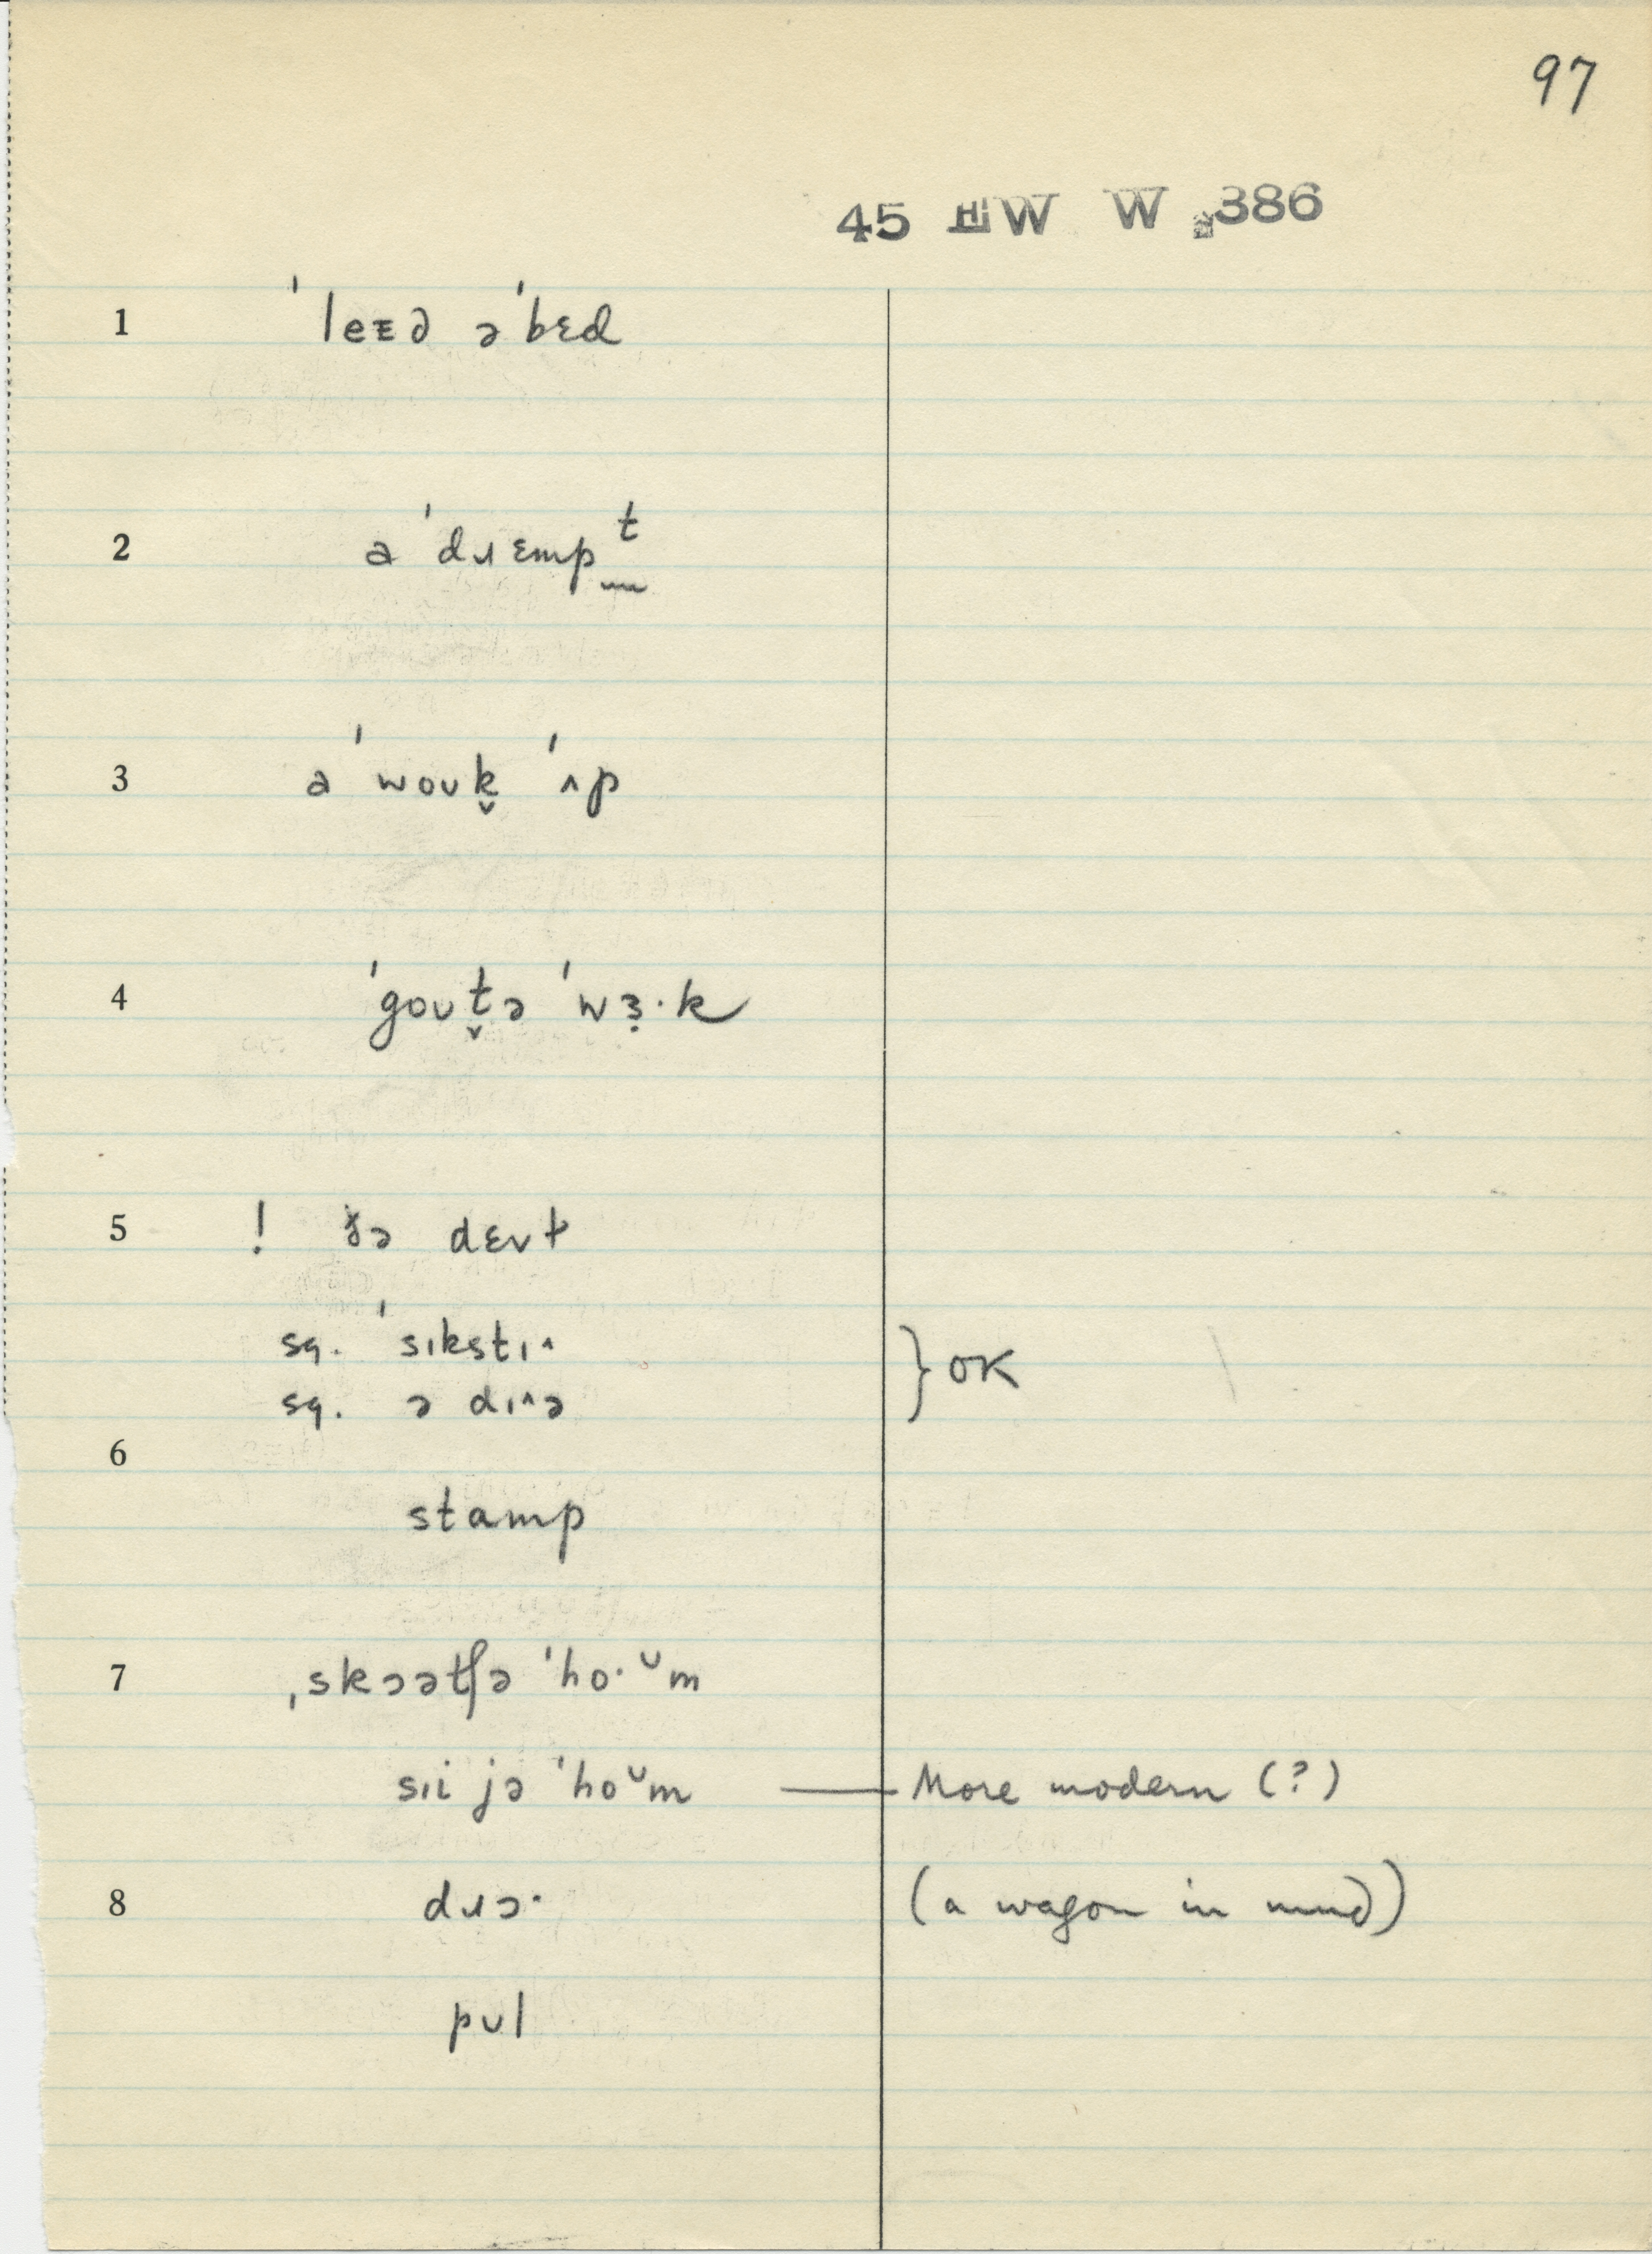 97
45 W W 386
1 ˈleᴇə əˈbɛd
2 ə ˈdɹɛmpt
3 ə ˈwoʊk̬ ˈʌp
4 ˈgoʊt̬ə ˈwɜ̣·k
5 ! ðə dɛvt
sq. ˈsɪkstɪ^
sq. ə dɪ^ə
6
stamp
7 ˌskɔətʃə ˈho·ᵘm
sɪi jə ˈhoᵘm More modern (?)
8 dɹɔ· (a wagon in mud)
pʊl
} OK